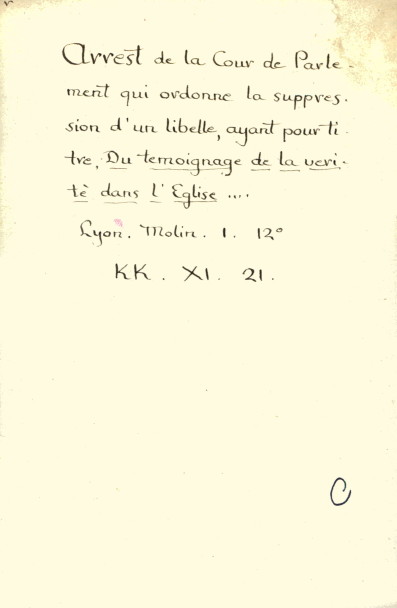 Arrest de la Cour de Parle-
ment qui ordonne la suppres-
sion d'un libelle, ayant pour ti-
tre, Du temoignage de la veri-
tè dans l'Eglise ....
Lyon. Molin. 1. 12°
KK. XI. 21.
C